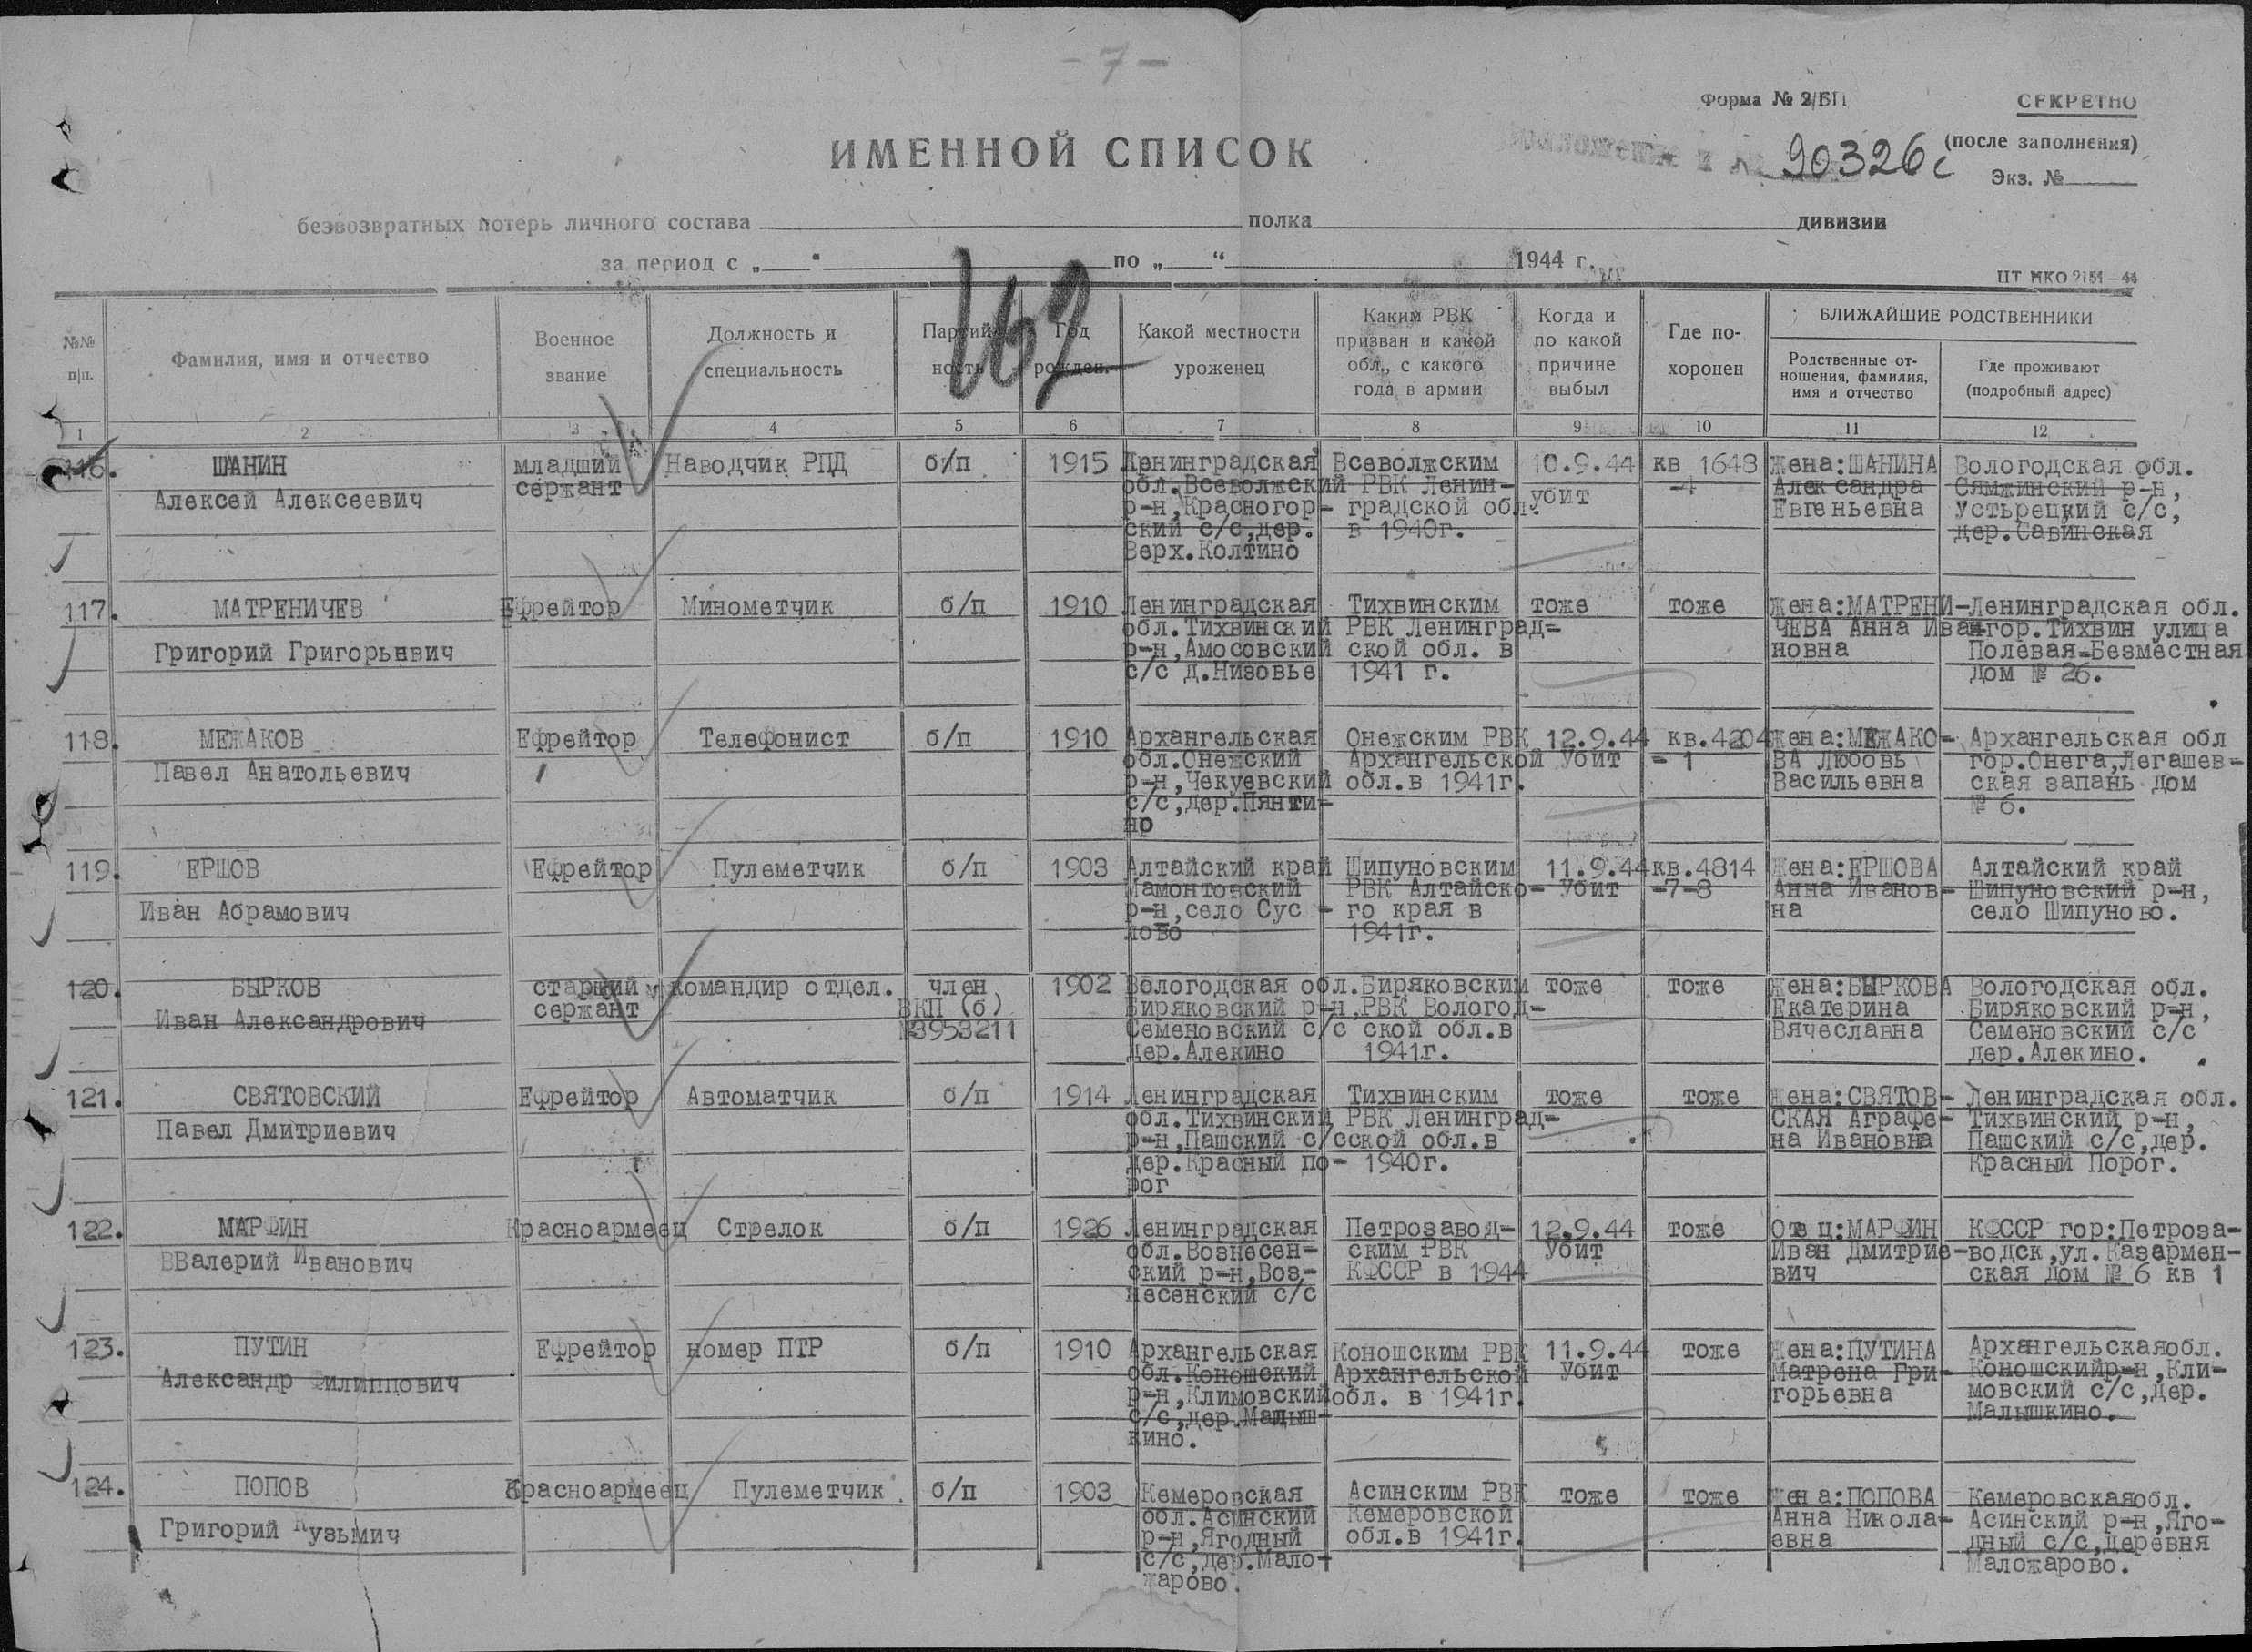 - 7 -
Форма № 2/БП
СЕКРЕТНО
ИМЕННОЙ СПИСОК
(после заполнения)
90326с
Экз. №
безвозвратных потерь личного состава полка дивизии
за период с „ “ по „ “ 1944 г.
162
№№ п/п.
Фамилия, имя и отчество
Военное звание
Должность и специальность
Партийность
Год рожден.
Какой местности уроженец
Каким РВК призван и какой обл., с какого года в армии
Когда и по какой причине выбыл
Где похоронен
БЛИЖАЙШИЕ РОДСТВЕННИКИ
Родственные отношения, фамилия, имя и отчество
Где проживают (подробный адрес)
1 2 3 4 5 6 7 8 9 10 11 12
116. ШАНИН младший Наводчик РПД б/п 1915 Ленинградская Всеволжским 10.9.44 кв 1648 Жена:ШАНИНА Вологодская обл.
сержант обл.Всеволжский РВК Ленин- убит -4 Александра Сямжинский р-н,
Алексей Алексеевич р-н,Красногор- градской обл. Евгеньевна Устьрецкий с/с,
ский с/с,дер. в 1940г. дер.Савинская
Верх.Колтино
117. МАТРЕНИЧЕВ Ефрейтор Минометчик б/п 1910 Ленинградская Тихвинским тоже тоже Жена:МАТРЕНИ- Ленинградская обл.
обл.Тихвинский РВК Ленинград- ЧЕВА Анна Ива- гор.Тихвин улица
Григорий Григорьевич р-н,Амосовский ской обл. в новна Полевая-Безместная
с/с д.Низовье 1941 г. дом № 26.
118. МЕЖАКОВ Ефрейтор Телефонист б/п 1910 Архангельская Онежским РВК 12.9.44 кв.4204 Жена:МЕЖАКО- Архангельская обл
обл.Онежский Архангельской Убит - 1 ВА Любовь гор.Онега,Легашев-
Павел Анатольевич р-н,Чекуевский обл.в 1941г. Васильевна ская запань дом
с/с,дер.Пянти- № 6.
но
119. ЕРШОВ Ефрейтор Пулеметчик б/п 1903 Алтайский край Шипуновским 11.9.44 кв.4814 Жена:ЕРШОВА Алтайский край
Мамонтовский РВК Алтайско- Убит -7-8 Анна Иванов- Шипуновский р-н,
Иван Абрамович р-н,село Сус - го края в на село Шипуново.
лово 1941г.
120. БЫРКОВ старший командир отдел. член 1902 Вологодская обл. Биряковским тоже тоже Жена:БЫРКОВА Вологодская обл.
сержант ВКП (б) Биряковский р-н, РВК Вологод- Екатерина Биряковский р-н,
Иван Александрович №3953211 Семеновский с/с ской обл.в Вячеславна Семеновский с/с
дер.Алекино 1941г. дер.Алекино.
121. СВЯТОВСКИЙ Ефрейтор Автоматчик б/п 1914 Ленинградская Тихвинским тоже тоже Жена:СВЯТОВ- Ленинградская обл.
обл.Тихвинский РВК Ленинград- СКАЯ Аграфе- Тихвинский р-н,
Павел Дмитриевич р-н,Пашский с/с ской обл.в на Ивановна Пашский с/с,дер.
дер.Красный по- 1940г. Красный Порог.
рог
122. МАРФИН Красноармеец Стрелок б/п 1926 Ленинградская Петрозавод- 12.9.44 тоже Отец:МАРФИН КФССР гор:Петроза-
обл.Вознесен- ским РВК Убит Иван Дмитрие- водск,ул.Казармен-
ВВалерий Иванович ский р-н,Воз- КФССР в 1944 вич ская дом № 6 кв 1
несенский с/с
123. ПУТИН Ефрейтор номер ПТР б/п 1910 Архангельская Коношским РВК 11.9.44 тоже Жена:ПУТИНА Архангельскаяобл.
обл.Коношский Архангельской Убит Матрена Гри- Коношскийр-н,Кли-
Александр Филиппович р-н,Климовский обл. в 1941г. горьевна мовский с/с,дер.
с/с,дер.Малыш- Малышкино.
кино.
124. ПОПОВ Красноармеец Пулеметчик б/п 1903 Кемеровская Асинским РВК тоже тоже Жена:ПОПОВА Кемеровскаяобл.
обл.Асинский Кемеровской Анна Никола- Асинский р-н,Яго-
Григорий Кузьмич р-н,Ягодный обл.в 1941г. евна дный с/с,деревня
с/с,дер.Мало- Маложарово.
жарово.